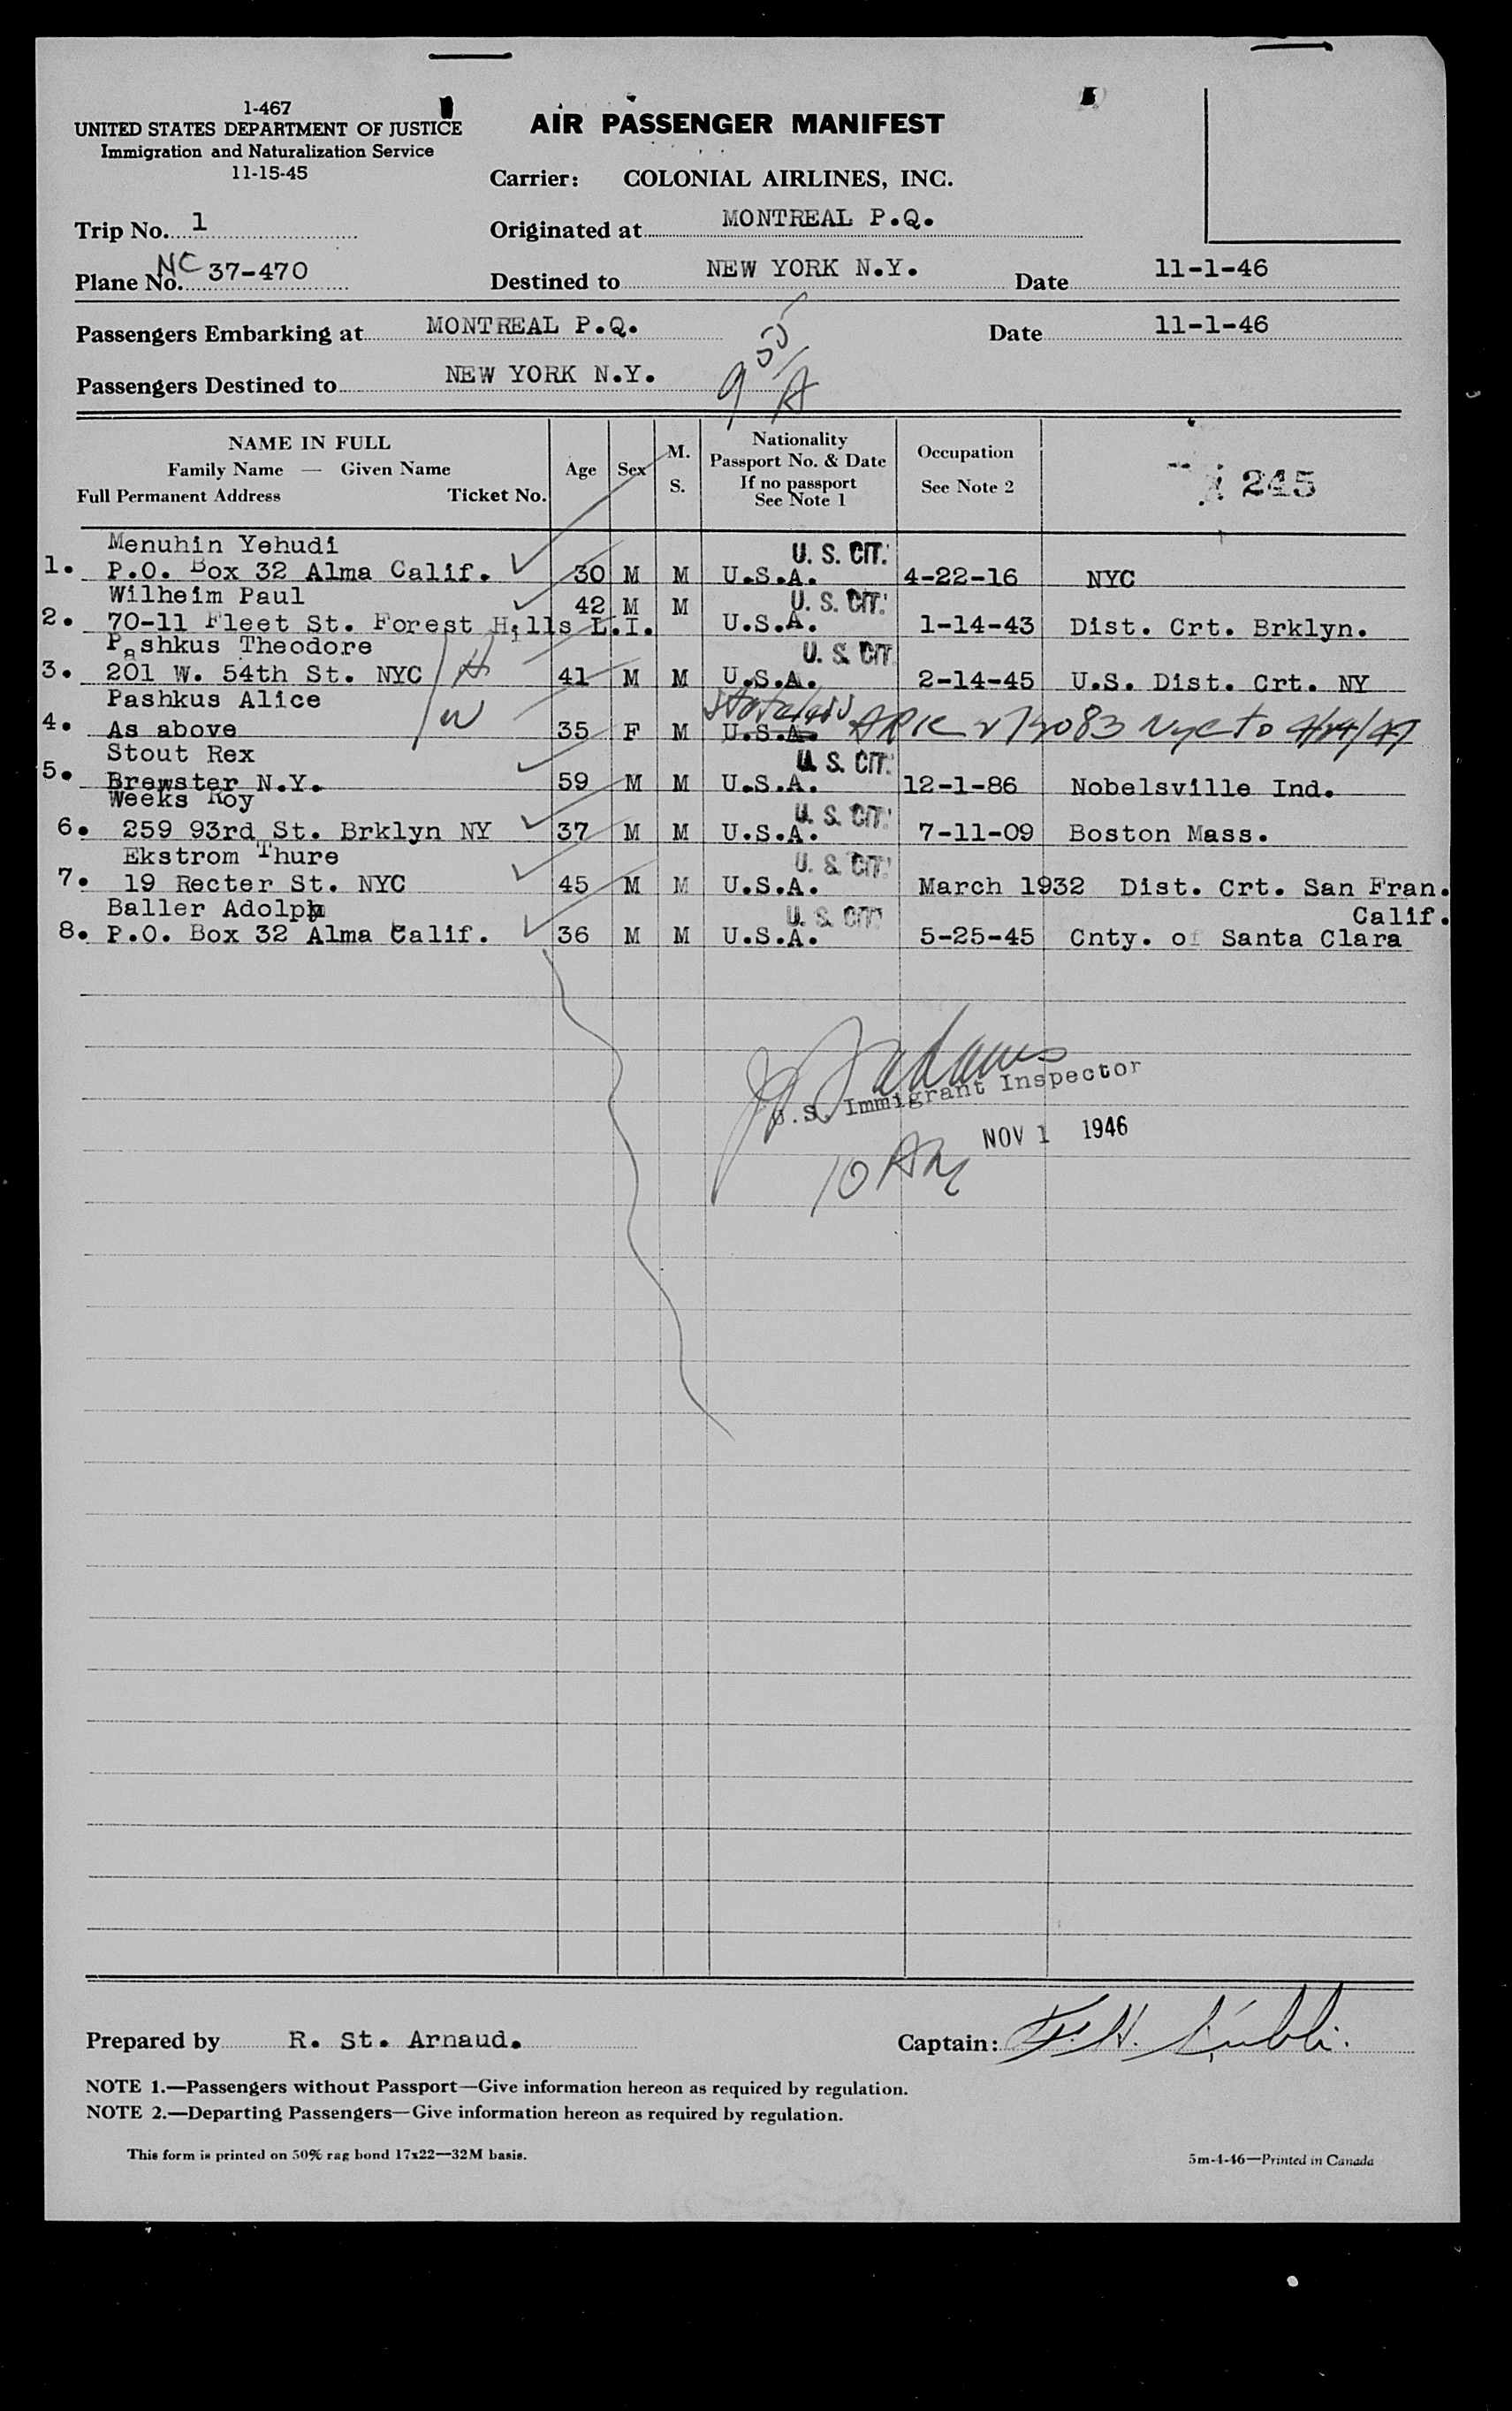 1-467
UNITED STATES DEPARTMENT OF JUSTICE
Immigration and Naturalization Service
11-15-45
AIR PASSENGER MANIFEST
Carrier: COLONIAL AIRLINES, INC.
Trip No. 1
Originated at MONTREAL P.Q.
Plane No. NC 37-470
Destined to NEW YORK N.Y. Date 11-1-46
Passengers Embarking at MONTREAL P.Q. Date 11-1-46
Passengers Destined to NEW YORK N.Y.
9 55/A
NAME IN FULL
Family Name — Given Name
Full Permanent Address Ticket No.
Age Sex M. S.
Nationality
Passport No. & Date
If no passport
See Note 1
Occupation
See Note 2
245
Menuhin Yehudi U. S. CIT.
1. P.O. Box 32 Alma Calif. 30 M M U.S.A. 4-22-16 NYC
Wilheim Paul 42 M M U. S. CIT.
2. 70-11 Fleet St. Forest Hills L.I. U.S.A. 1-14-43 Dist. Crt. Brklyn.
Pashkus Theodore U. S. CIT
3. 201 W. 54th St. NYC H 41 M M U.S.A. 2-14-45 U.S. Dist. Crt. NY
Pashkus Alice W Stateless
4. As above 35 F M U.S.A. NYC to
Stout Rex U. S. CIT.
5. Brewster N.Y. 59 M M U.S.A. 12-1-86 Nobelsville Ind.
Weeks Roy U. S. CIT.
6. 259 93rd St. Brklyn NY 37 M M U.S.A. 7-11-09 Boston Mass.
Ekstrom Thure U. S. CIT.
7. 19 Recter St. NYC 45 M M U.S.A. March 1932 Dist. Crt. San Fran.
Baller Adolph U. S. CIT Calif.
8. P.O. Box 32 Alma Calif. 36 M M U.S.A. 5-25-45 Cnty. of Santa Clara
Adams
U.S. Immigrant Inspector
NOV 1 1946
10 AM
Prepared by R. St. Arnaud. Captain: F.H.
NOTE 1.—Passengers without Passport—Give information hereon as required by regulation.
NOTE 2.—Departing Passengers—Give information hereon as required by regulation.
This form is printed on 50% rag bond 17x22—32M basis.
5m-4-46—Printed in Canada